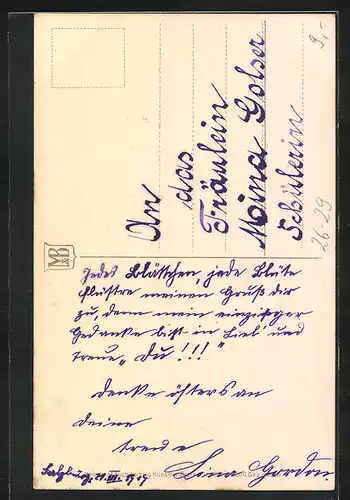 An
das
Fräulein
Mina Golser
Schülerin
9,-
26-29
M B
Jedes Blättchen, jede Blüte
flüstre meinen Gruß dir
zu, denn mein einziger
Gedanke bist in Lieb' und
Treue „Du!!!"
Denke öfters an
deine
treue
Lina Gordon
Salzburg,